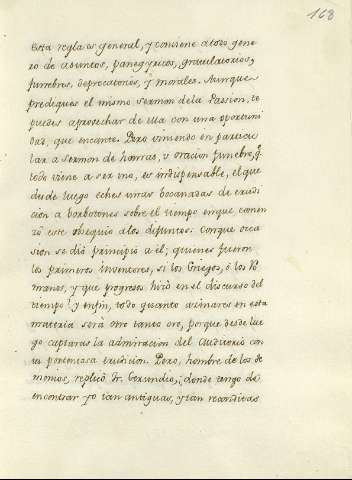 168
Esta regla es general, y conviene a todo gene
ro de asuntos, panegyricos, gratulatorios,
funebres, deprecatorios, y morales. Aunque
prediques el mismo sermon dela Passion, te
puedes aprovechar de ella con una oportuni
dad, que encante. Pero viniendo en particu
lar a sermon de honras, u oracion funebre, q.
todo viene a ser uno, es indispensable, el que
desde luego eches unas bocanadas de erudi
cion a borbotones sobre el tiempo enque comen
zó este obsequio alos difuntos: conque oca
sion se dió principio a el; quienes fueron
los primeros inventores, si los Griegos, ò los Ro
manos, y que progresos hizo en el discurso del
tiempo? y enfin, todo quanto acinares en esta
materia será otro tanto oro, porque desde lue
go captaras la admiracion del auditorio con
tu portentosa erudicion. Pero, hombre de los de
monios, replicó Fr. Gerundio, donde tengo de
encontrar yo tan antiguas, y tan reconditas